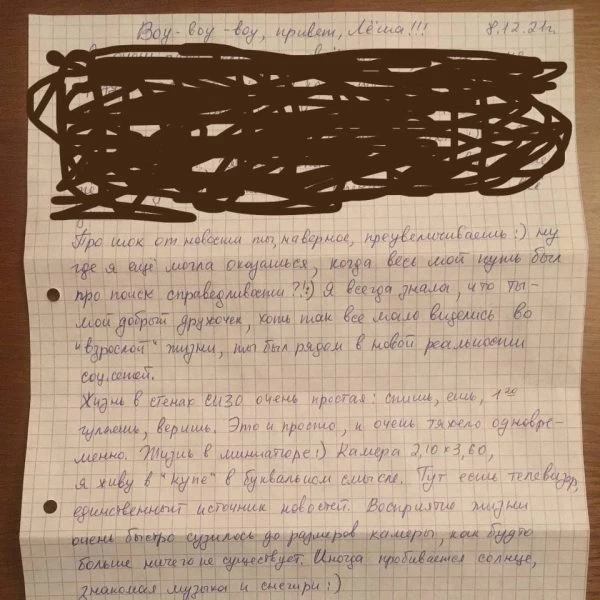 Воу-воу-воу, привет, Лёша!!! 8.12.21г.
Про шок от новости ты, наверное, преувеличиваешь:) ну
где я ещё могла оказаться, когда весь мой путь был
про поиск справедливости?!:) Я всегда знала, что ты-
мой добрый дружочек, хоть так все мало виделись во
"взрослой" жизни, ты был рядом в новой реальности
соц.сетей.
Жизнь в стенах СИЗО очень простая: спишь, ешь, 1 
гуляешь, веришь. Это и просто, и очень тяжело одновре-
менно. Жизнь в миниатюре:) Камера 2,10 х 3,60,
я живу в "купе" в буквальном смысле. Тут есть телевизор,
единственный источник новостей. Восприятие жизни
очень быстро сузилось до размеров камеры, как будто
больше ничего не существует. Иногда пробивается солнце,
знакомая музыка и снегири:)